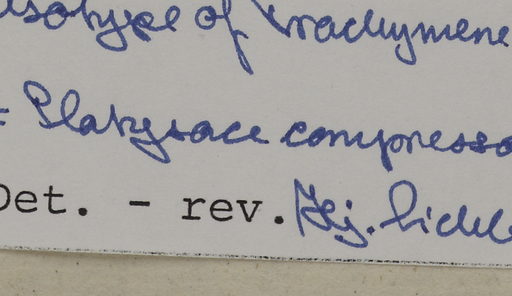 Isotype of Trachymene
= Platysace compressa
Det. - rev. Hj. Eichle